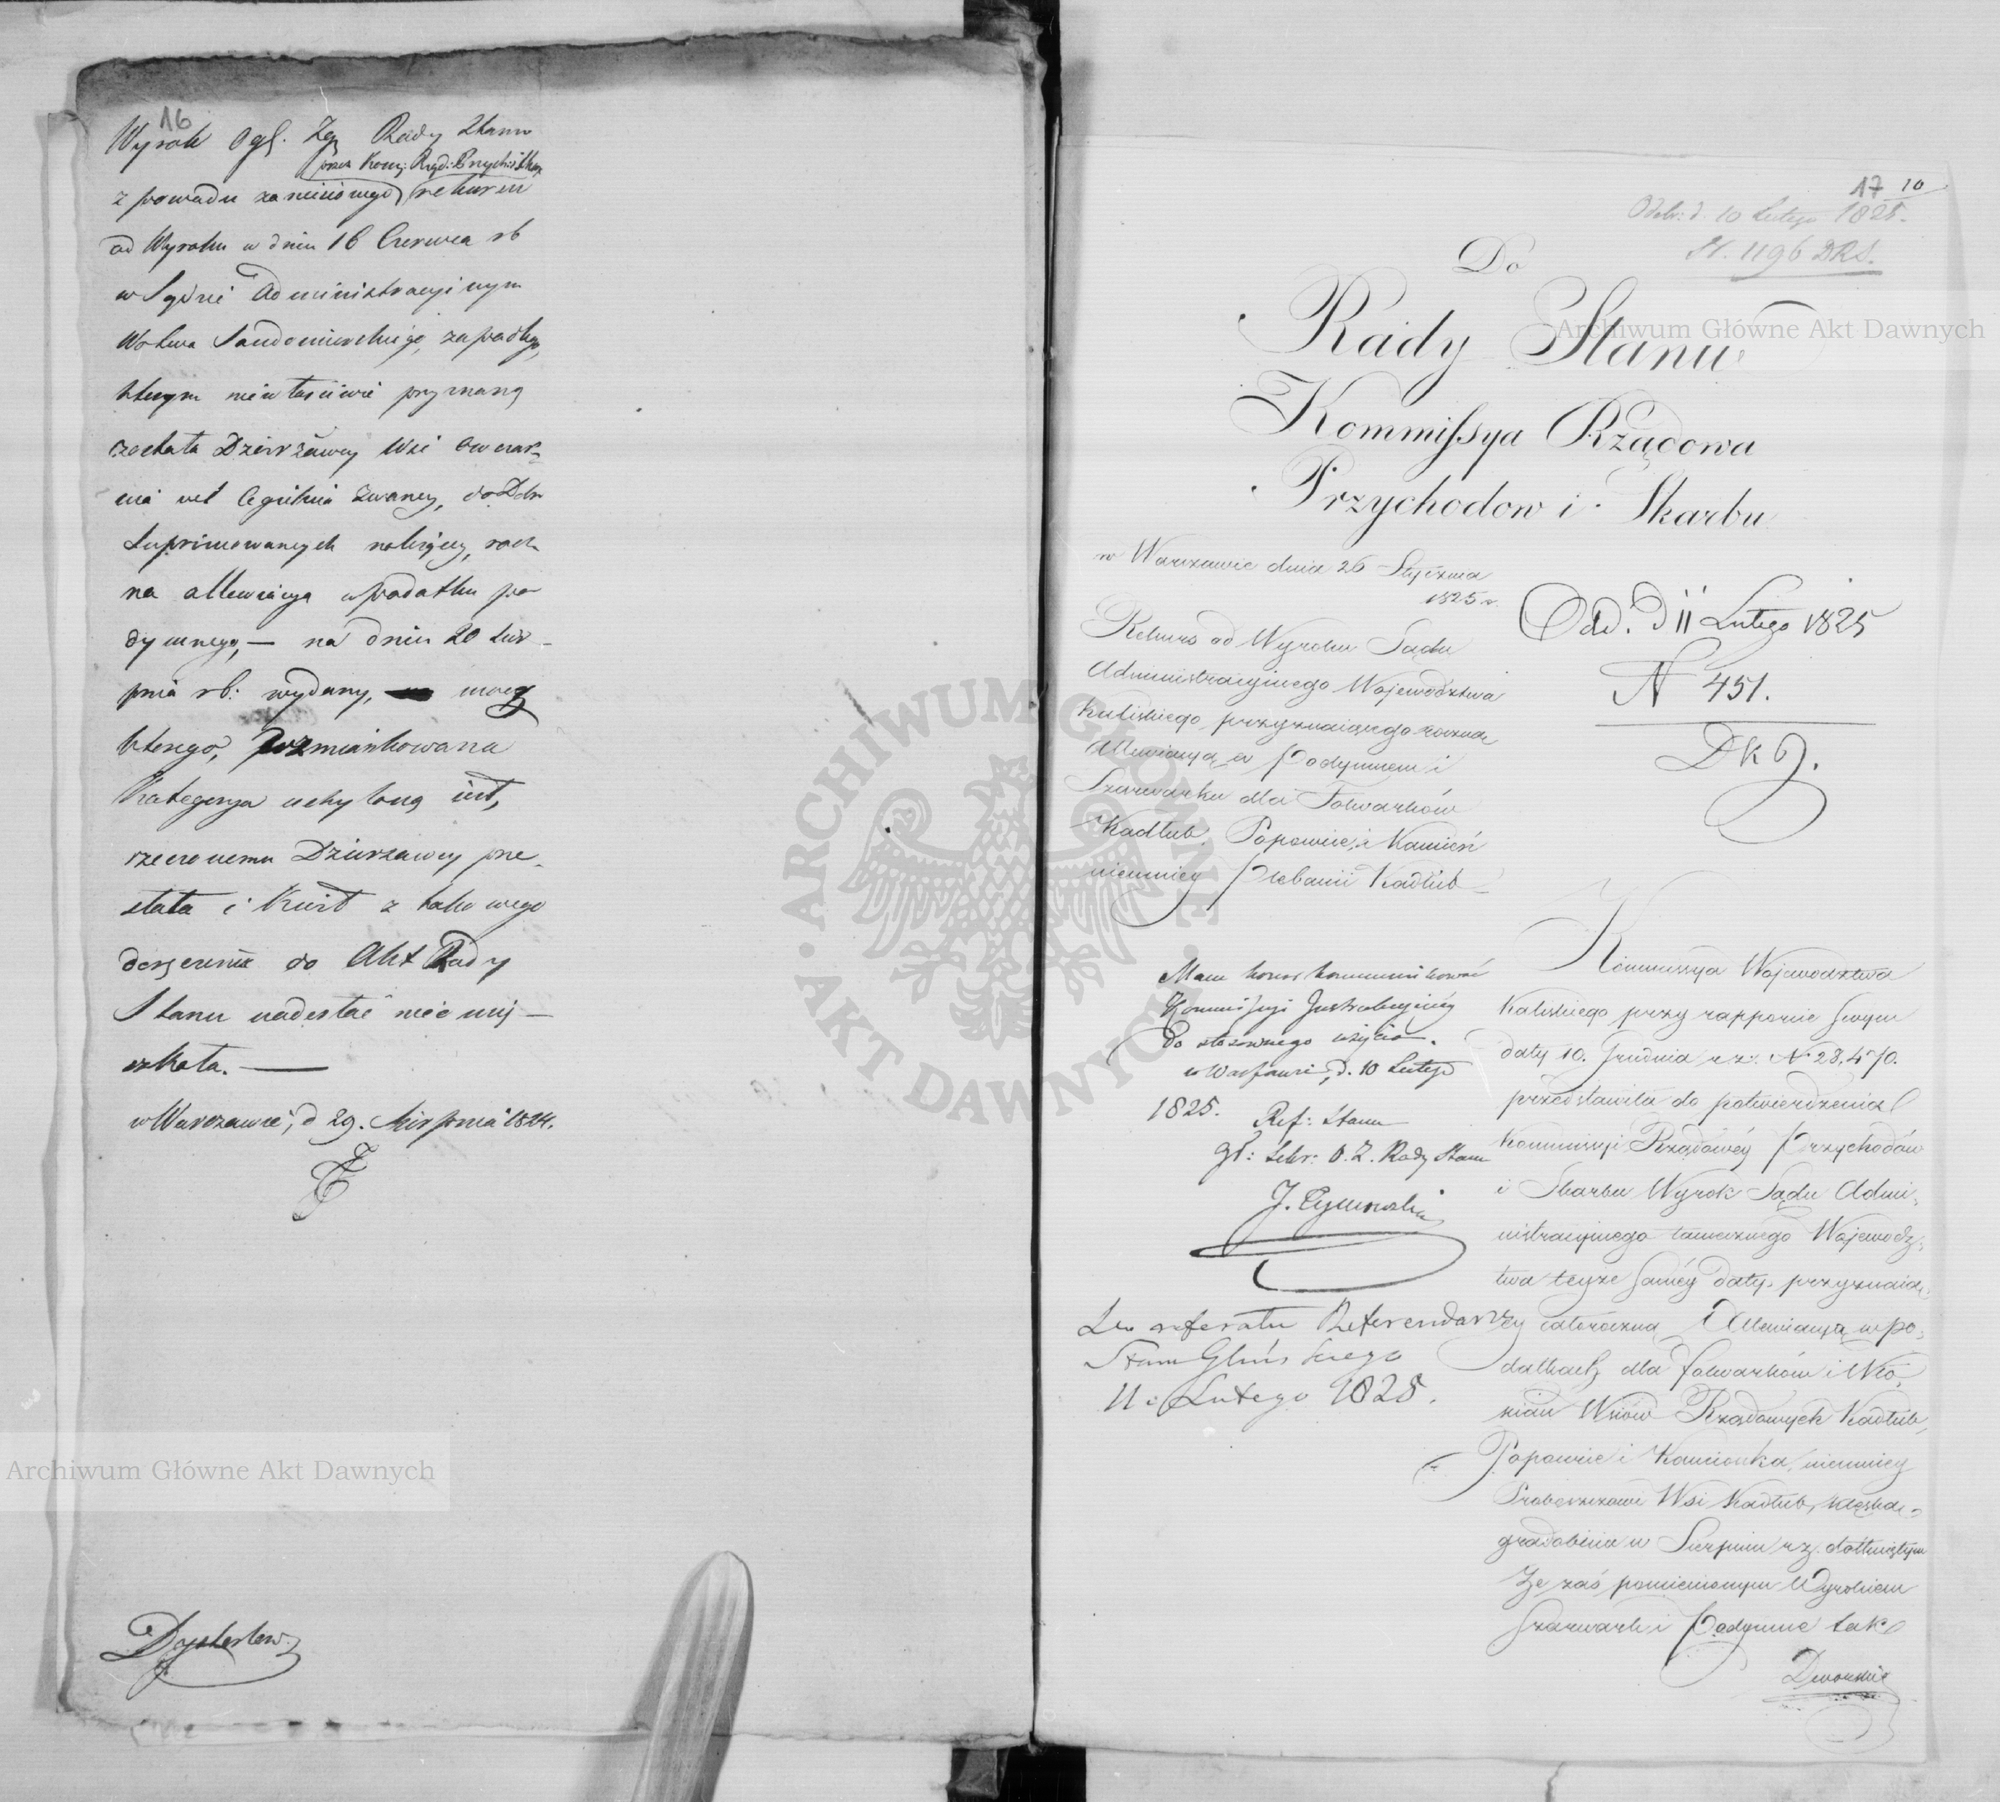 16
Wyrok Ogl. Zgr Rady Stanu
przez Kom: Rząd: Przych: i Skar
z powodu zaniesionego rekursu
od Wyroku w dniu 16 Czerwca rb
w Sądzie Administracyinym
Wodztwa Sandomirskiego, zapadłego,
którym niewłaściwie przyznaną
została Dzierżawcy Wsi Owczar-
nia vel Cegielnia zwaney, do Dobr
Suprimowanych należący,
na allewiacya w podatku po
dymnego, — na dniu 20 Sier-
pnia rb: wydany, mocą
którego, wzmiankowana
Kategorya uchyloną iest,
rzeczonemu Dzierżawcy prze-
słała i Kwit z takowego
doręczenia do Akt Rady
Stanu nadesłać nieomie-
szkała. —
w Warszawie, d 29. Sierpnia 1824.
17 10
Odebr: d. 10 Lutego 1825.
N. 1196 DRS.
Do
Rady Stanu
Kommissya Rządowa
Przychodow i Skarbu
w Warszawie dnia 26 Stycznia
1825 r.
Odd. D 11 Lutego 1825
N 451.
Rekurs od Wyroku Sądu
Administracyinego Województwa
Kaliskiego, przyznaiącego roczną
Allewiacyą w Podymnem i
Szarwarku dla Folwarków
Kadłub, Popowice, i Kamień
niemniey Plebanii Kadłub
Mam honor kommunikować
Kommissyi Instrukcyiney
do stosownego użycia.
w Warszawie, d. 10 Lutego
1825.
Ref: Stanu
gł: Sekr: O. Z. Rady Stanu
J. Tymowski
Do referatu Referendarzy
Stanu Glińskiego
11 Lutego 1825.
Kommissya Województwa
Kaliskiego przy rapporcie swym
daty 10. Grudnia r: z: N 28,470.
przedstawiła do potwierdzenia
Kommissyi Rządowéy Przychodów
i Skarbu Wyrok Sądu Admi-
nistracyinego tamecznego Wojewódz-
twa teyże saméy daty, przyznaią-
cy całoroczną Allewiacyą w po-
datkach dla folwarków i Wło-
ścian Wsiów Rządowych Kadłub,
Popowice i Kamionka, niemniey
Proboszczowi Wsi Kadłub, klęską
gradobicia w Sierpniu r z. dotkniętym
Że zaś pomienionym Wyrokiem
Szarwark i Podymne tak